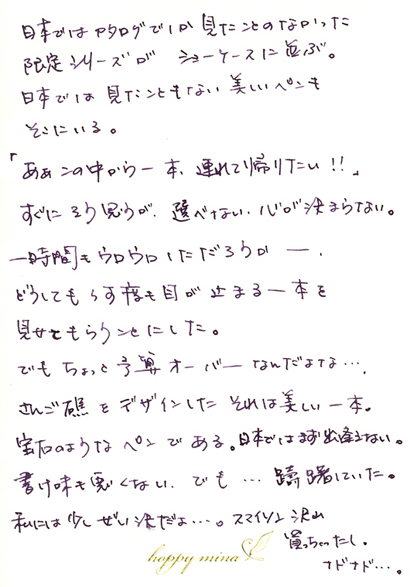 日本ではカタログでしか見たことのなかった
限定シリーズが ショーケースに並ぶ。
日本では見たこともない美しいペンも
そこにいる。
「あぁこの中から一本、連れて帰りたい!!」
すぐにそう思うが、選べない、心が決まらない。
一時間もウロウロしただろうか ー 、
どうしても 目が止まる一本を
見せてもらうことにした。
でもちょっと予算オーバーなんだよな…、
さんご礁をデザインしたそれは美しい一本。
宝石のようなペンである。日本ではまず出逢えない。
書け味も悪くない、でも… 躊躇していた。
私には少しぜい沢だよ…。スマイソン沢山
買っちゃったし。
ナドナド…。
happy mina